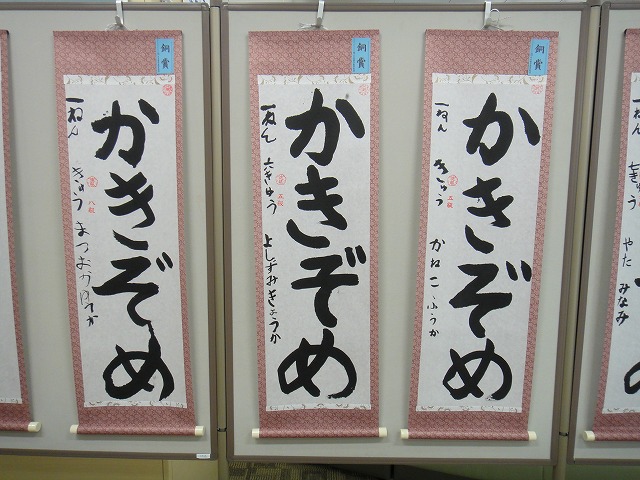 銅賞
かきぞめ
一ねん きゅう まつおか
八級
銅賞
かきぞめ
一ねん 六きゅう 上しずみきょうか
五級
銅賞
かきぞめ
一ねん きゅう かねこふうか
五級
ねん 七きゅう やた みなみ